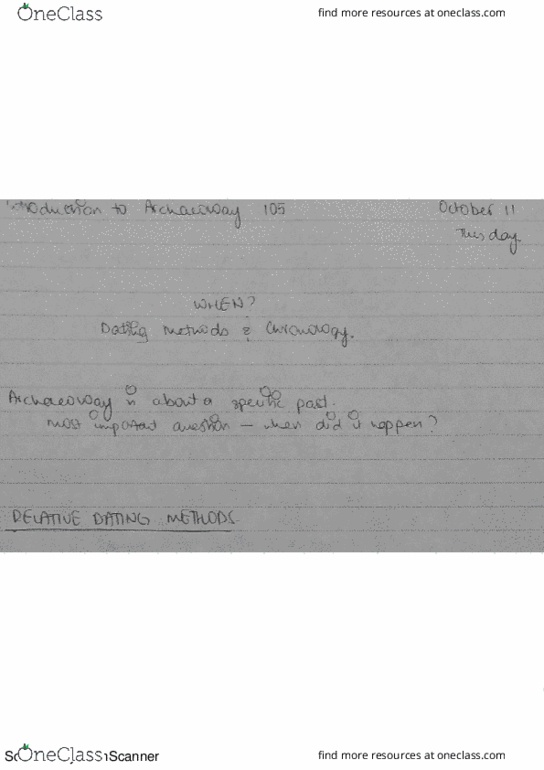 OneClass
find more resources at oneclass.com
Introduction to Archaeology 105 October 11
Tuesday
WHEN?
Dating methods & Chronology.
Archaeology is about a specific past.
most important question – when did it happen?
RELATIVE DATING METHODS
OneClass
Scanner
find more resources at oneclass.com